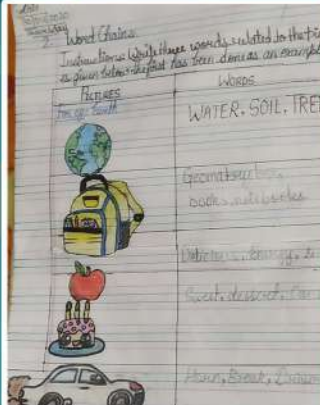 Word Chains.
Instructions: Write three words related to the pi
is given below the first has been done as an exampl
PICTURES
WORDS
WATER, SOIL, TREE
Geomatry box,
books, notebooks
Delicious, Energy,
Sweet, dessert,
Horn, Break,